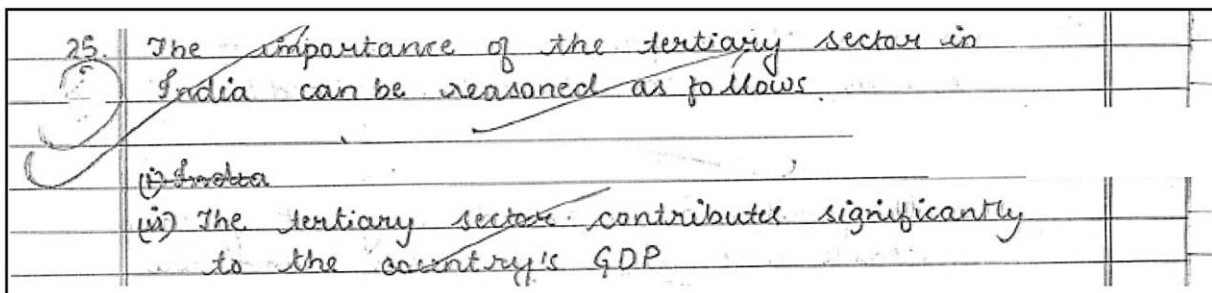 25. The importance of the tertiary sector in
India can be reasoned as follows.
(i) India
(ii) The tertiary sector contributes significantly
to the country's GDP